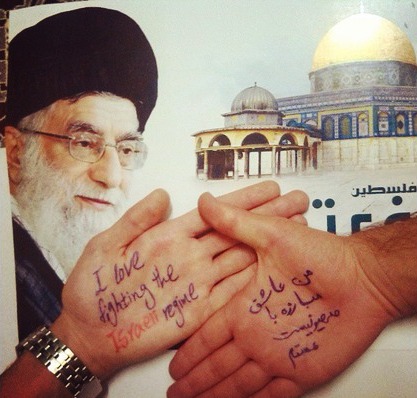 فلسطين
I love
fighting the
Israeli regime
من عاشق
مبارزه با
صهیونیست
هستم